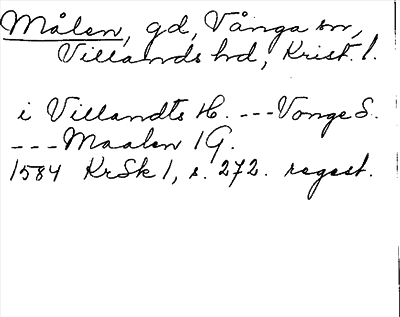 Målen, gd, Vånga sn,
Villands hd, Krist. l.
i Villandts H. --- Vonge S.
--- Maalen 1 G.
1584 KrSk 1, s. 272. regest.